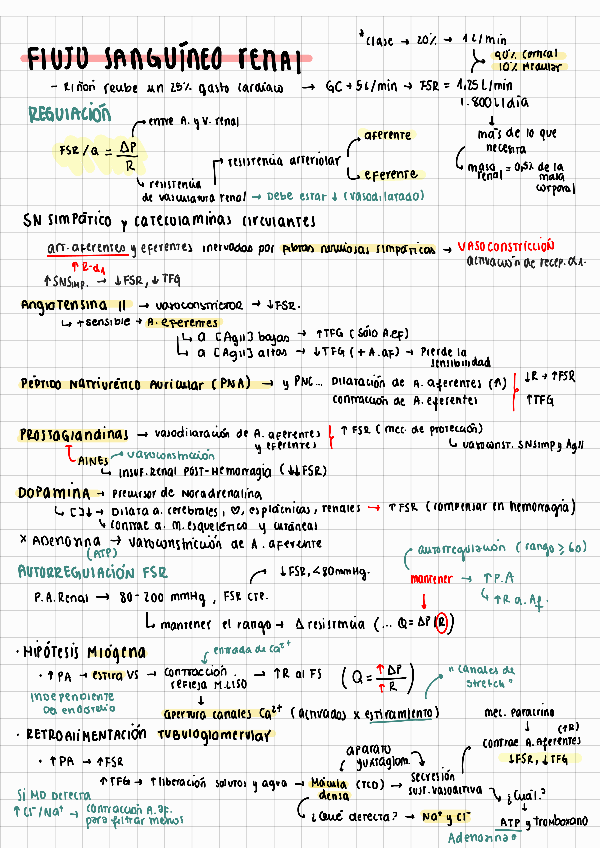 FLUJO SANGUÍNEO RENAL
*Clase → 20% → 1L/min
90% Cortical
10% Medular
- Riñón recibe un 25% gasto cardíaco → GC → 5L/min → FSR = 1,25 L/min
1.800L/día
↓
más de lo que necesita
masa renal = 0,5% de la masa corporal
REGULACIÓN
entre A. y V. renal
FSR/Q = ΔP/R
resistencia de vasculatura renal → Debe estar ↓ (vasodilatado)
resistencia arteriolar
aferente
eferente
SN simpático y catecolaminas circulantes
art. aferentes y eferentes inervadas por fibras nerviosas simpáticas → VASOCONSTRICCIÓN
↑ R-α1
activación de recep. α1.
↑ SNSimp. → ↓FSR, ↓TFG
Angiotensina II → vasoconstrictor → ↓FSR.
↳ +sensible → A. eferentes
↳ a [AgII] bajas → ↑TFG (sólo A.ef)
↳ a [AgII] altas → ↓TFG (+A.af) → Pierde la sensibilidad
Péptido Natriurético Auricular (PNA) → y PNC... Dilatación de A. aferentes (↑)
contracción de A. eferentes
↓R → ↑FSR
↑TFG
Prostaglandinas → vasodilatación de A. aferentes y eferentes
↑ FSR (mec. de protección)
↳ vasoconst. SNSimp y AgII
AINES → vasoconstricción
↳ Insuf. Renal POST-Hemorragia (↓↓FSR)
DOPAMINA → Precursor de noradrenalina
↳ [ ]↓ → Dilata a. cerebrales, ♡, esplácnicas, renales → ↑FSR (compensar en hemorragia)
↳ contrae a. m. esquelético y cutáneas
x Adenosina → vasoconstricción de A. aferente
(ATP)
AUTORREGULACIÓN FSR
↓FSR, <80mmHg.
P.A. Renal → 80-200 mmHg, FSR cte.
↳ mantener el rango → Δ resistencia (... Q = ΔP/R)
autorregulación (rango ≥ 60)
mantener → ↑P.A
↳ ↑R a. Af.
· HIPÓTESIS MIÓGENA
entrada de Ca²⁺
· ↑PA → estira VS → contracción refleja M.LISO → ↑R al FS (Q = ↑ΔP/↑R)
"canales de stretch"
Independiente De endotelio
apertura canales Ca²⁺ (activados x estiramiento)
· RETROALIMENTACIÓN TUBULOGLOMERULAR
· ↑PA → ↑FSR
↑TFG → ↑ liberación solutos y agua → Mácula densa (TCD) → secreción sust. vasoactiva
aparato yuxtaglom.
mec. paracrino
(↑R)
contrae A. Aferentes
↓FSR, ↓TFG
¿Cuál?
ATP y tromboxano
Adenosina
¿Qué detecta? → Na⁺ y Cl⁻
Si MD detecta
↑Cl⁻/Na⁺ → contracción A. af. para filtrar menos